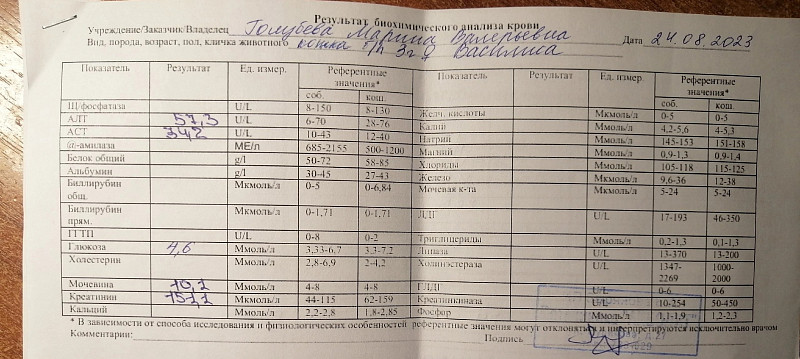 Результат биохимического анализа крови
Учреждение/Заказчик/Владелец Голубева Марина Валерьевна
Вид, порода, возраст, пол, кличка животного кошка б/п 3г Василиса Дата 24.08.2023
Показатель Результат Ед. измер. Референтные значения* соб. кош. Показатель Результат Ед. измер. Референтные значения* соб. кош.
Щ/фосфатаза U/L 8-150 8-130 Желч. кислоты Мкмоль/л 0-5 0-5
АЛТ 57,3 U/L 6-70 28-76 Калий Ммоль/л 4,2-5,6 4-5,3
АСТ 34,2 U/L 10-43 12-40 Натрий Ммоль/л 145-153 151-158
@-амилаза МЕ/л 685-2155 500-1200 Магний Ммоль/л 0,9-1,3 0,9-1,4
Белок общий g/l 50-72 58-85 Хлориды Ммоль/л 105-118 115-125
Альбумин g/l 30-45 27-43 Железо Ммоль/л 9,6-36 12-38
Биллирубин общ. Мкмоль/л 0-5 0-6,84 Мочевая к-та Мкмоль/л 5-24 5-24
Биллирубин прям. Мкмоль/л 0-1,71 0-1,71 ЛДГ U/L 17-193 46-350
ГГТП U/L 0-8 0-2 Триглицериды Ммоль/л 0,2-1,3 0,1-1,3
Глюкоза 4,6 Ммоль/л 3,33-6,7 3,3-7,2 Липаза U/L 13-370 13-200
Холестерин Ммоль/л 2,8-6,9 2-4,2 Холинэстераза U/L 1347-2269 1000-2000
Мочевина 10,1 Ммоль/л 4-8 4-8 ГЛДГ U/L 0-6 0-6
Креатинин 151,1 Мкмоль/л 44-115 62-159 Креатинкиназа U/L 10-254 50-450
Кальций Ммоль/л 2,2-2,8 1,8-2,85 Фосфор Ммоль/л 1,1-1,9 1,2-2,3
* В зависимости от способа исследования и физиологических особенностей референтные значения могут отклоняться и интерпретируются исключительно врачом
Комментарии: Подпись